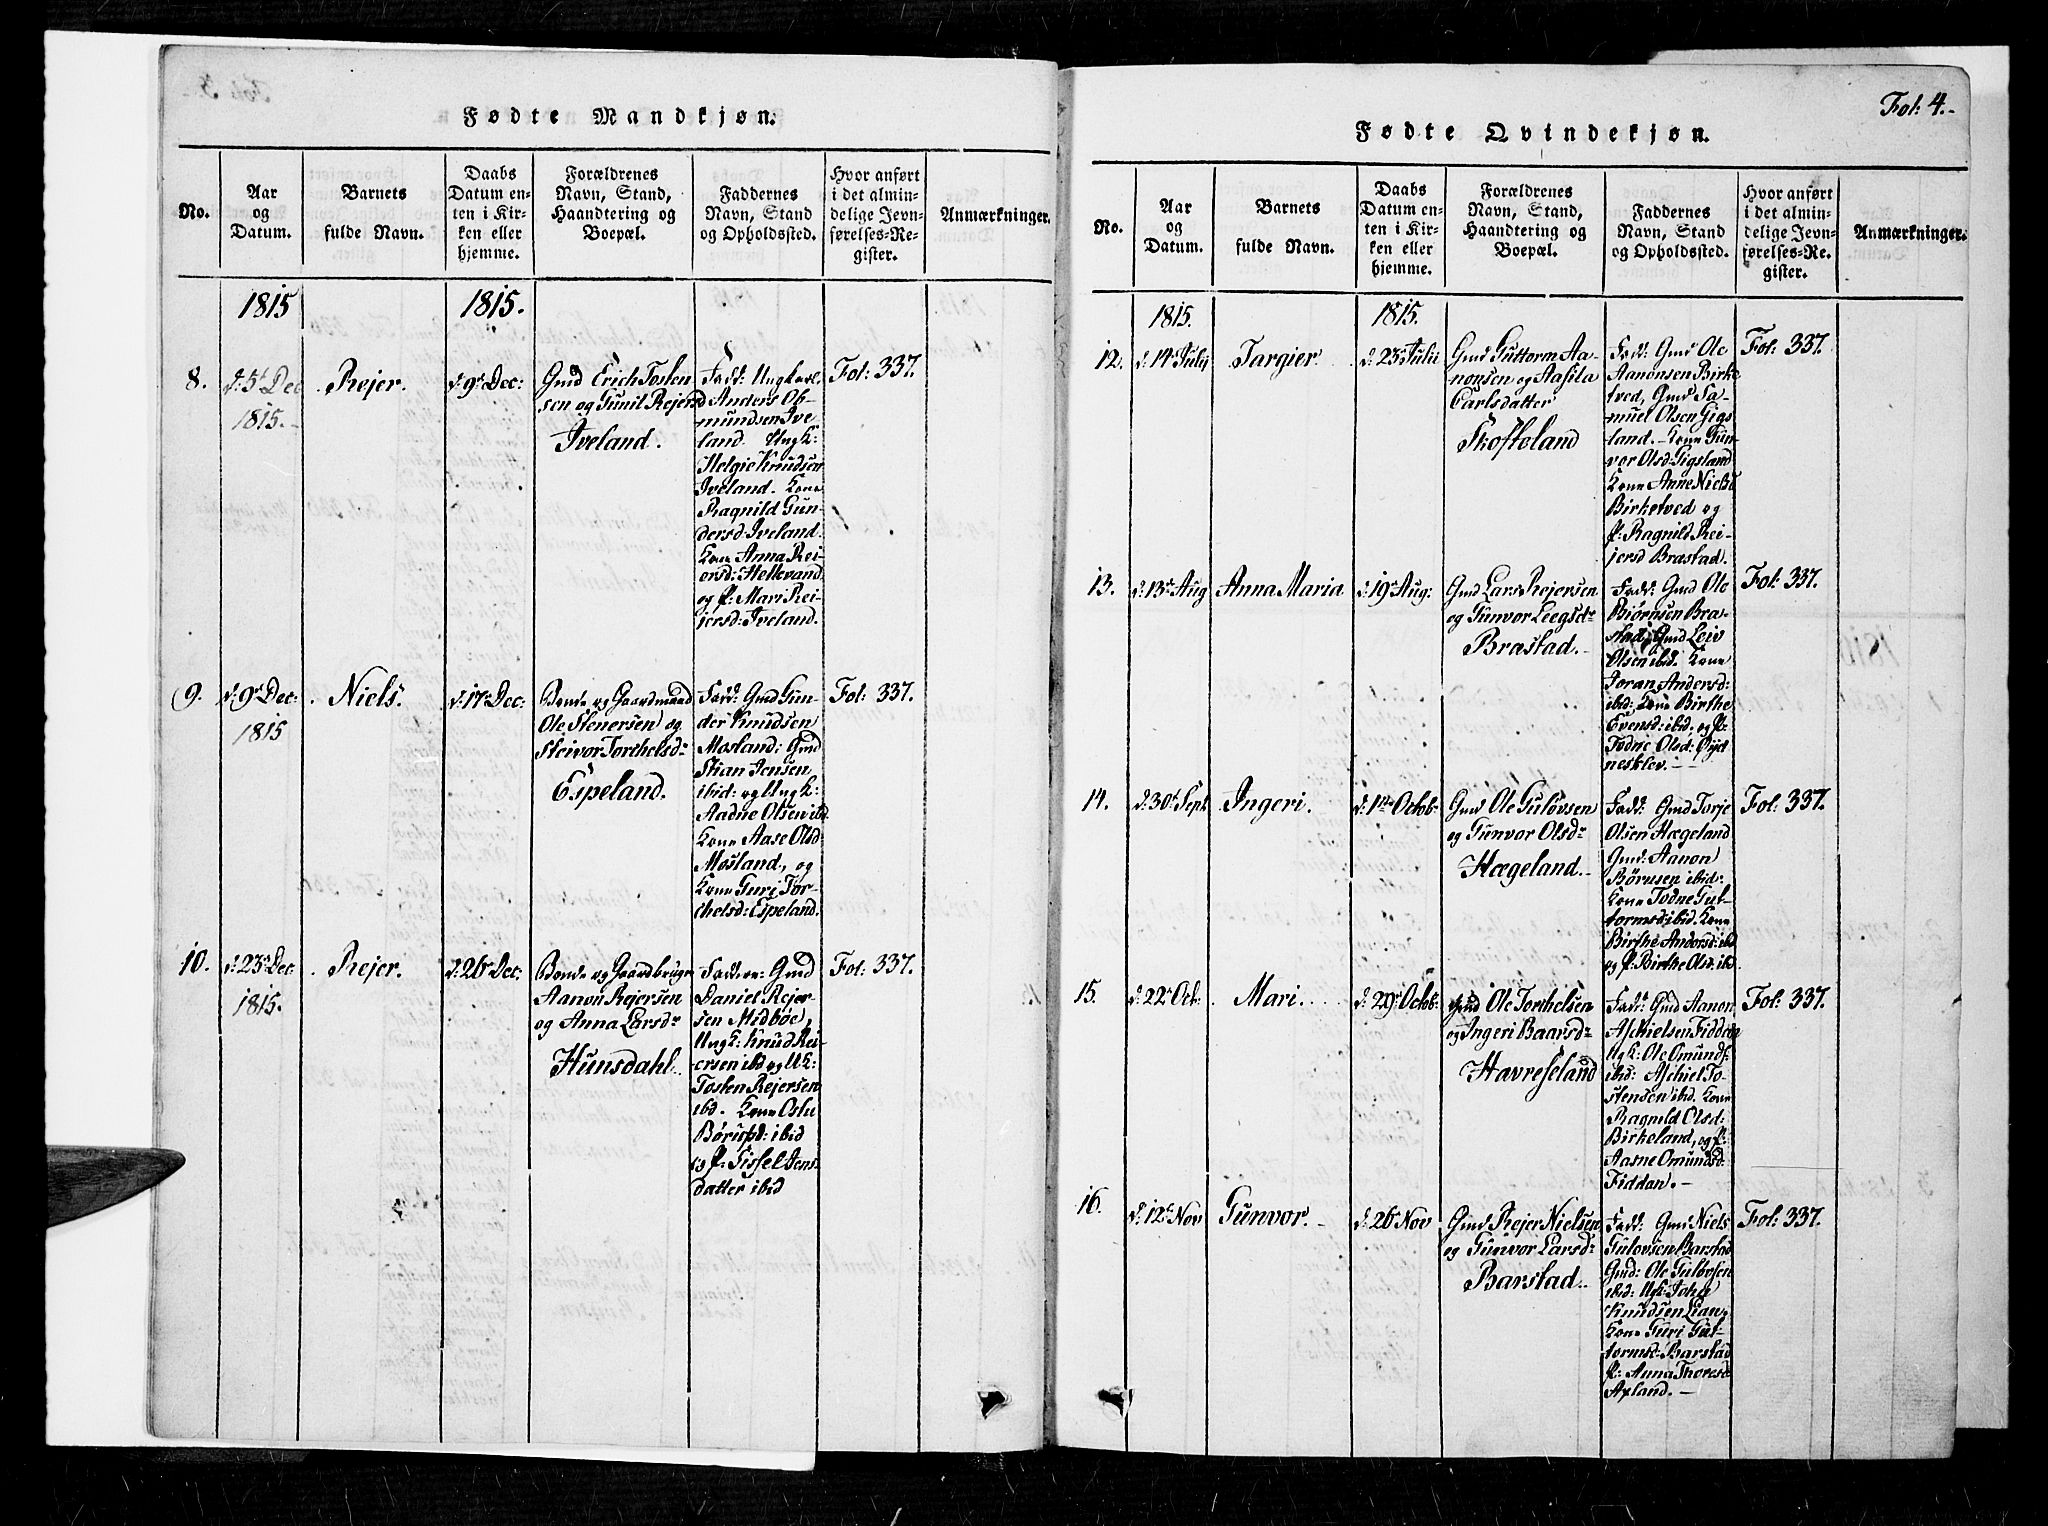 Fødte Mandkjøn.
No.
Aar
og
Datum.
Barnets
fulde Navn.
Daabs
Datum en-
ten i Kir-
ken eller
hjemme.
Forældrenes
Navn, Stand,
Haandtering og
Boepæl.
Faddernes
Navn, Stand
og Opholdssted.
Hvor anført
i det almin-
delige Jevn-
førelses-Re-
gister.
Anmærkninger.
1815
1815.
8.
d: 5t Dec
1815.
Rejer.
d: 9t Dec:
Gmd Erich Tosten
sen og Gunil Rejersd
Iveland.
Fadd: Ungkarl
Anders Od-
mundsen Ive
land. Ungk:
Helgie Knudsen
Iveland. Kone
Ragnild Gun
dersd Iveland.
Kone Anna Rei
ersd: Hellevand
og P: Mari Rei
jersd: Iveland.
Fol: 337.
9.
d: 9t Dec:
1815
Niels.
d: 17t Dec:
Bonde og Gaardmand
Ole Stenersen og
Steivor Torchelsdr
Espeland.
Fadd: Gmd Gun
der Knudsen
Mosland: Gmd
Stian Jensen
ibid: og Ungk:
Aadne Olsen ibd
Kone Aase Olsd
Mosland, og
Kone Guri Tor-
chelsd: Espeland.
Fol: 337.
10.
d: 23t Dec:
1815.
Rejer.
d: 26t Dec:
Bonde og Gaardbruger
Aanon Rejersen
og Anna Larsdr
Hunsdahl.
Faddere: Gmd
Daniel Rejer
sen Midbøe,
Ungk: Knud Rei
ersen ibd og UK:
Tosten Rejersen
ibd. Kone Oslu
Børuspd: ibid
og P: Sissel Jens
datter ibid
Fol: 337.
Fol: 4.
Fødte Qvindekjøn.
No.
Aar
og
Datum.
Barnets
fulde Navn.
Daabs
Datum en-
ten i Kir-
ken eller
hjemme.
Forældrenes
Navn, Stand,
Haandtering og
Boepæl.
Faddernes
Navn, Stand
og Opholdssted.
Hvor anført
i det almin-
delige Jevn-
førelses-Re-
gister.
Anmærkninger.
1815.
1815.
12.
d: 14t Julij
Targier.
d: 23t Julii
Gmd Guttorm Aa-
nonsen og Aasila
Carlsdatter
Skofteland
Fadd: Gmd Ole
Aanonsen Birke
tved, Gmd Sa-
muel Olsen Gigs
land. - Kone Gun-
vor Olsd: Gigsland
Kone Anne Nielsd
Birketved og
P: Ragnild Rei-
jersd Bræstad.
Fol: 337.
13.
d: 13t Aug
Anna Maria
d: 19t Aug:
Gmd Lars Rejersen
og Gunvor Leegsdr
Bræstad.
Fadd: Gmd Ole
Biørnsen Bræ-
stad, Gmd Leiv
Olsen ibid. Kone
Joran Andersd:
ibid: Kone Birthe
Evensd: ibid: og P:
Todne Olsd: Øyet
nesklev.
Fol: 337.
14.
d: 30t Sept
Ingeri.
d: 1te Octob:
Gmd Ole Gulovsen
og Gunvor Olsdr
Hægeland.
Fadd: Gmd Torje
Olsen Hægeland
Gmd: Aanon
Børusen ibid:
Kone Todne Gut-
tormsd: ibid. Kone
Birthe Andersd: ibd
og P: Birthe Olsd: ibd.
Fol: 337.
15.
d: 22t Oct:
Mari.
d: 29t Octob:
Gmd Ole Torchelsen
og Ingeri Baarsdr
Havreseland
Fadd: Gmd Aanon
Aschielsen Fiddan
Ugk: Ole Omundsz
ibid: Aschiel To-
stensen ibid. Kone
Ragnild Olsd:
Birkeland, og P:
Aasne Omundsd:
Fiddan. -
Fol: 337.
16.
d: 12t Nov
Gunvor.
d: 26 Nov
Gmd Rejer Nielsen
og Gunvor Larsdr
Barstad.
Fadd: Gmd Niels
Gulovsen Barstad
Gmd: Ole Gulovsen
ibid: Ugk: John
Knudsen Lian,
Kone Guri Gut-
tormsd: Barstad
P: Anna Thoresd
Axland. -
Fol: 337.